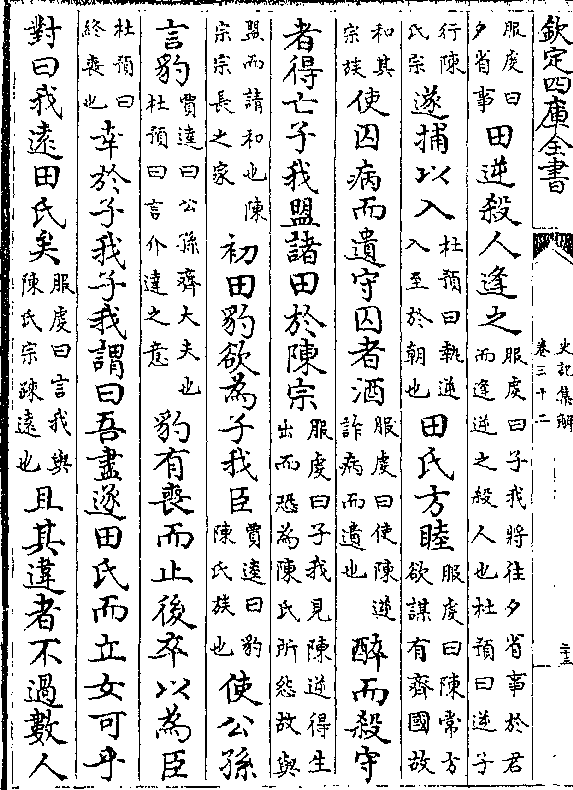 欽定四庫全書 史記集解 卷三十二
服虔曰夕省事田逆殺人逢之服虔曰子我將往夕省事於君而逢逆之殺人也杜預曰逆子
行陳氏宗遂捕以入杜預曰執逆入至於朝也田氏方睦服虔曰陳常方欲謀有齊國故
和其宗族使囚病而遺守囚者酒服虔曰使陳逆詐病而遺也醉而殺守
者得亡子我盟諸田於陳宗服虔曰子我見陳逆得生出而恐為陳氏所怨故與
盟而請和也陳宗宗長之家初田豹欲為子我臣賈逵曰豹陳氏族也使公孫
言豹賈逵曰公孫齊大夫也杜預曰言介達之意豹有喪而止後卒以為臣
杜預曰終喪也幸於子我子我謂曰吾盡遂田氏而立女可乎
對曰我遠田氏矣服虔曰言我與陳氏宗疎遠也且其違者不過數人